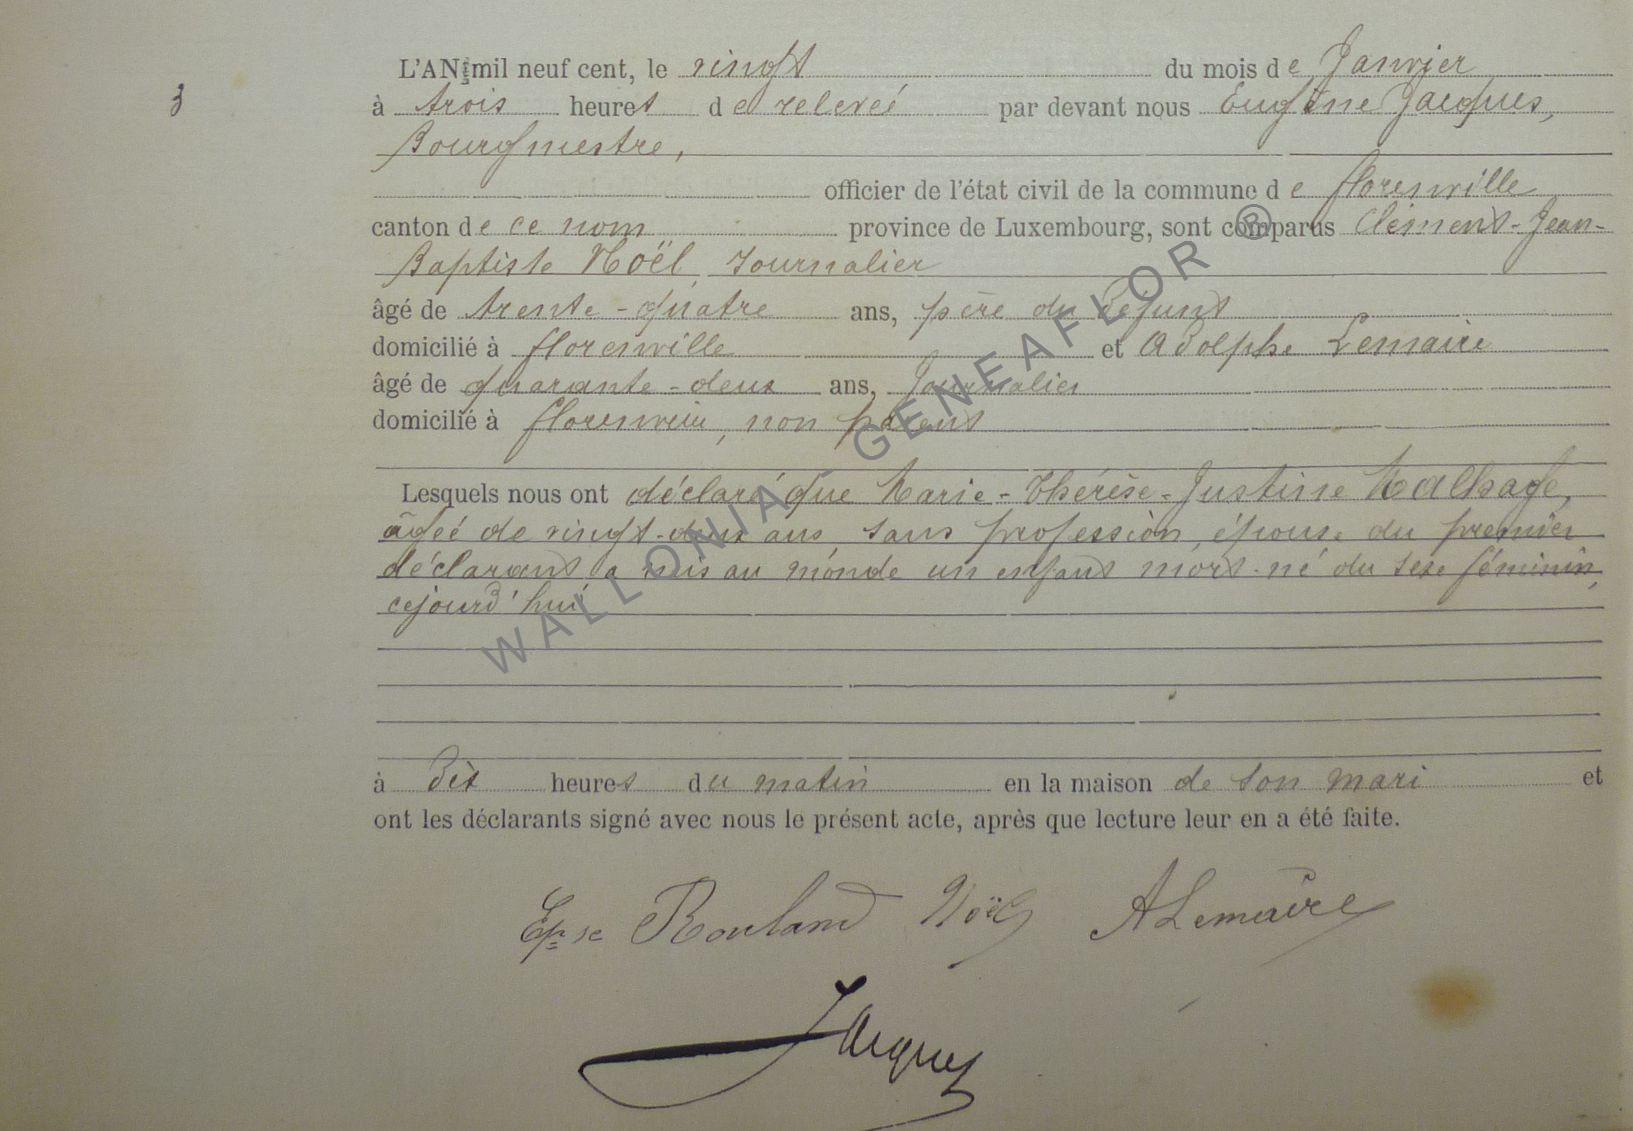 L'AN mil neuf cent, le vingt du mois de Janvier
3
à trois heures de relevée par devant nous Eugène Jacques,
Bourgmestre,
officier de l'état civil de la commune de florenville
canton de ce nom province de Luxembourg, sont comparus Clément-Jean-
Baptiste Noël, Journalier
âgé de trente-quatre ans, père du défunt
domicilié à florenville et Adolphe Lemaire
âgé de quarante-deux ans, Journalier
domicilié à florenville, non parent
Lesquels nous ont déclaré que Marie-Thérèse-Justine Malhage,
âgée de vingt-deux ans, sans profession, épouse du premier
déclarant a mis au monde un enfant mort-né du sexe féminin,
cejourd'hui
à dix heures du matin en la maison de son mari et
ont les déclarants signé avec nous le présent acte, après que lecture leur en a été faite.
Noël ALemaire
Jacques
WALLONIA GENEAFLOR ®